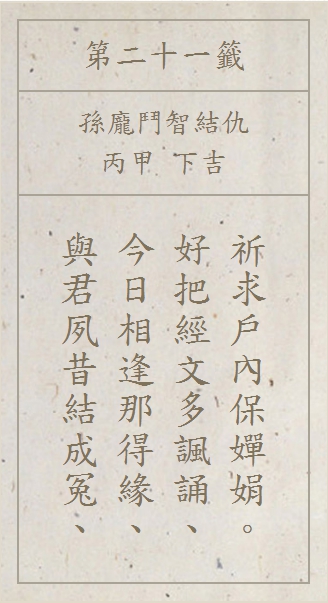 第二十一籤
孫龐鬥智結仇
丙甲 下吉
與君夙昔結成冤、
今日相逢那得緣、
好把經文多諷誦、
祈求戶內保嬋娟。